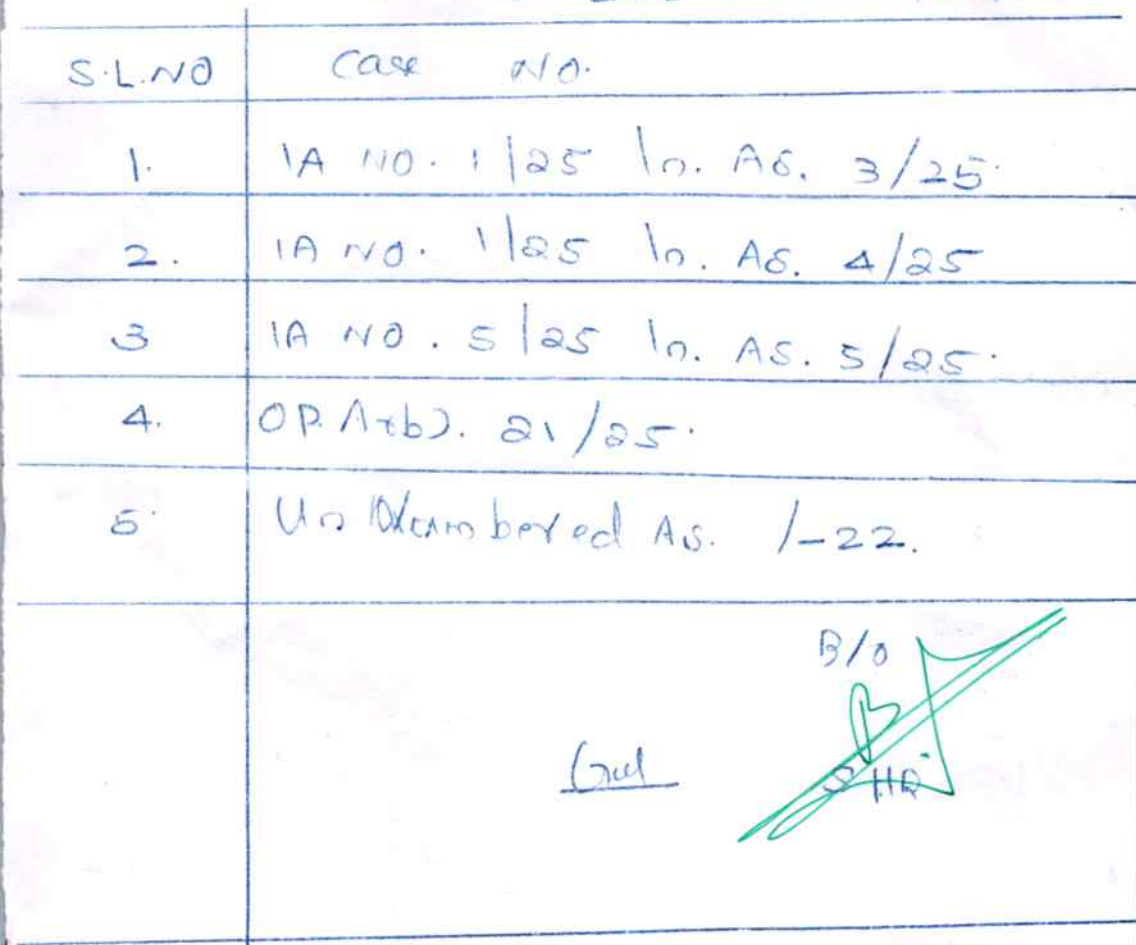 S.L.NO Case NO.
1. IA NO. 1/25 In. AS. 3/25.
2. IA NO. 1/25 In. AS. 4/25
3 IA NO. 5/25 In. AS. 5/25.
4. OP. Arb). 21/25.
5. Un numbered AS. /-22.
B/O